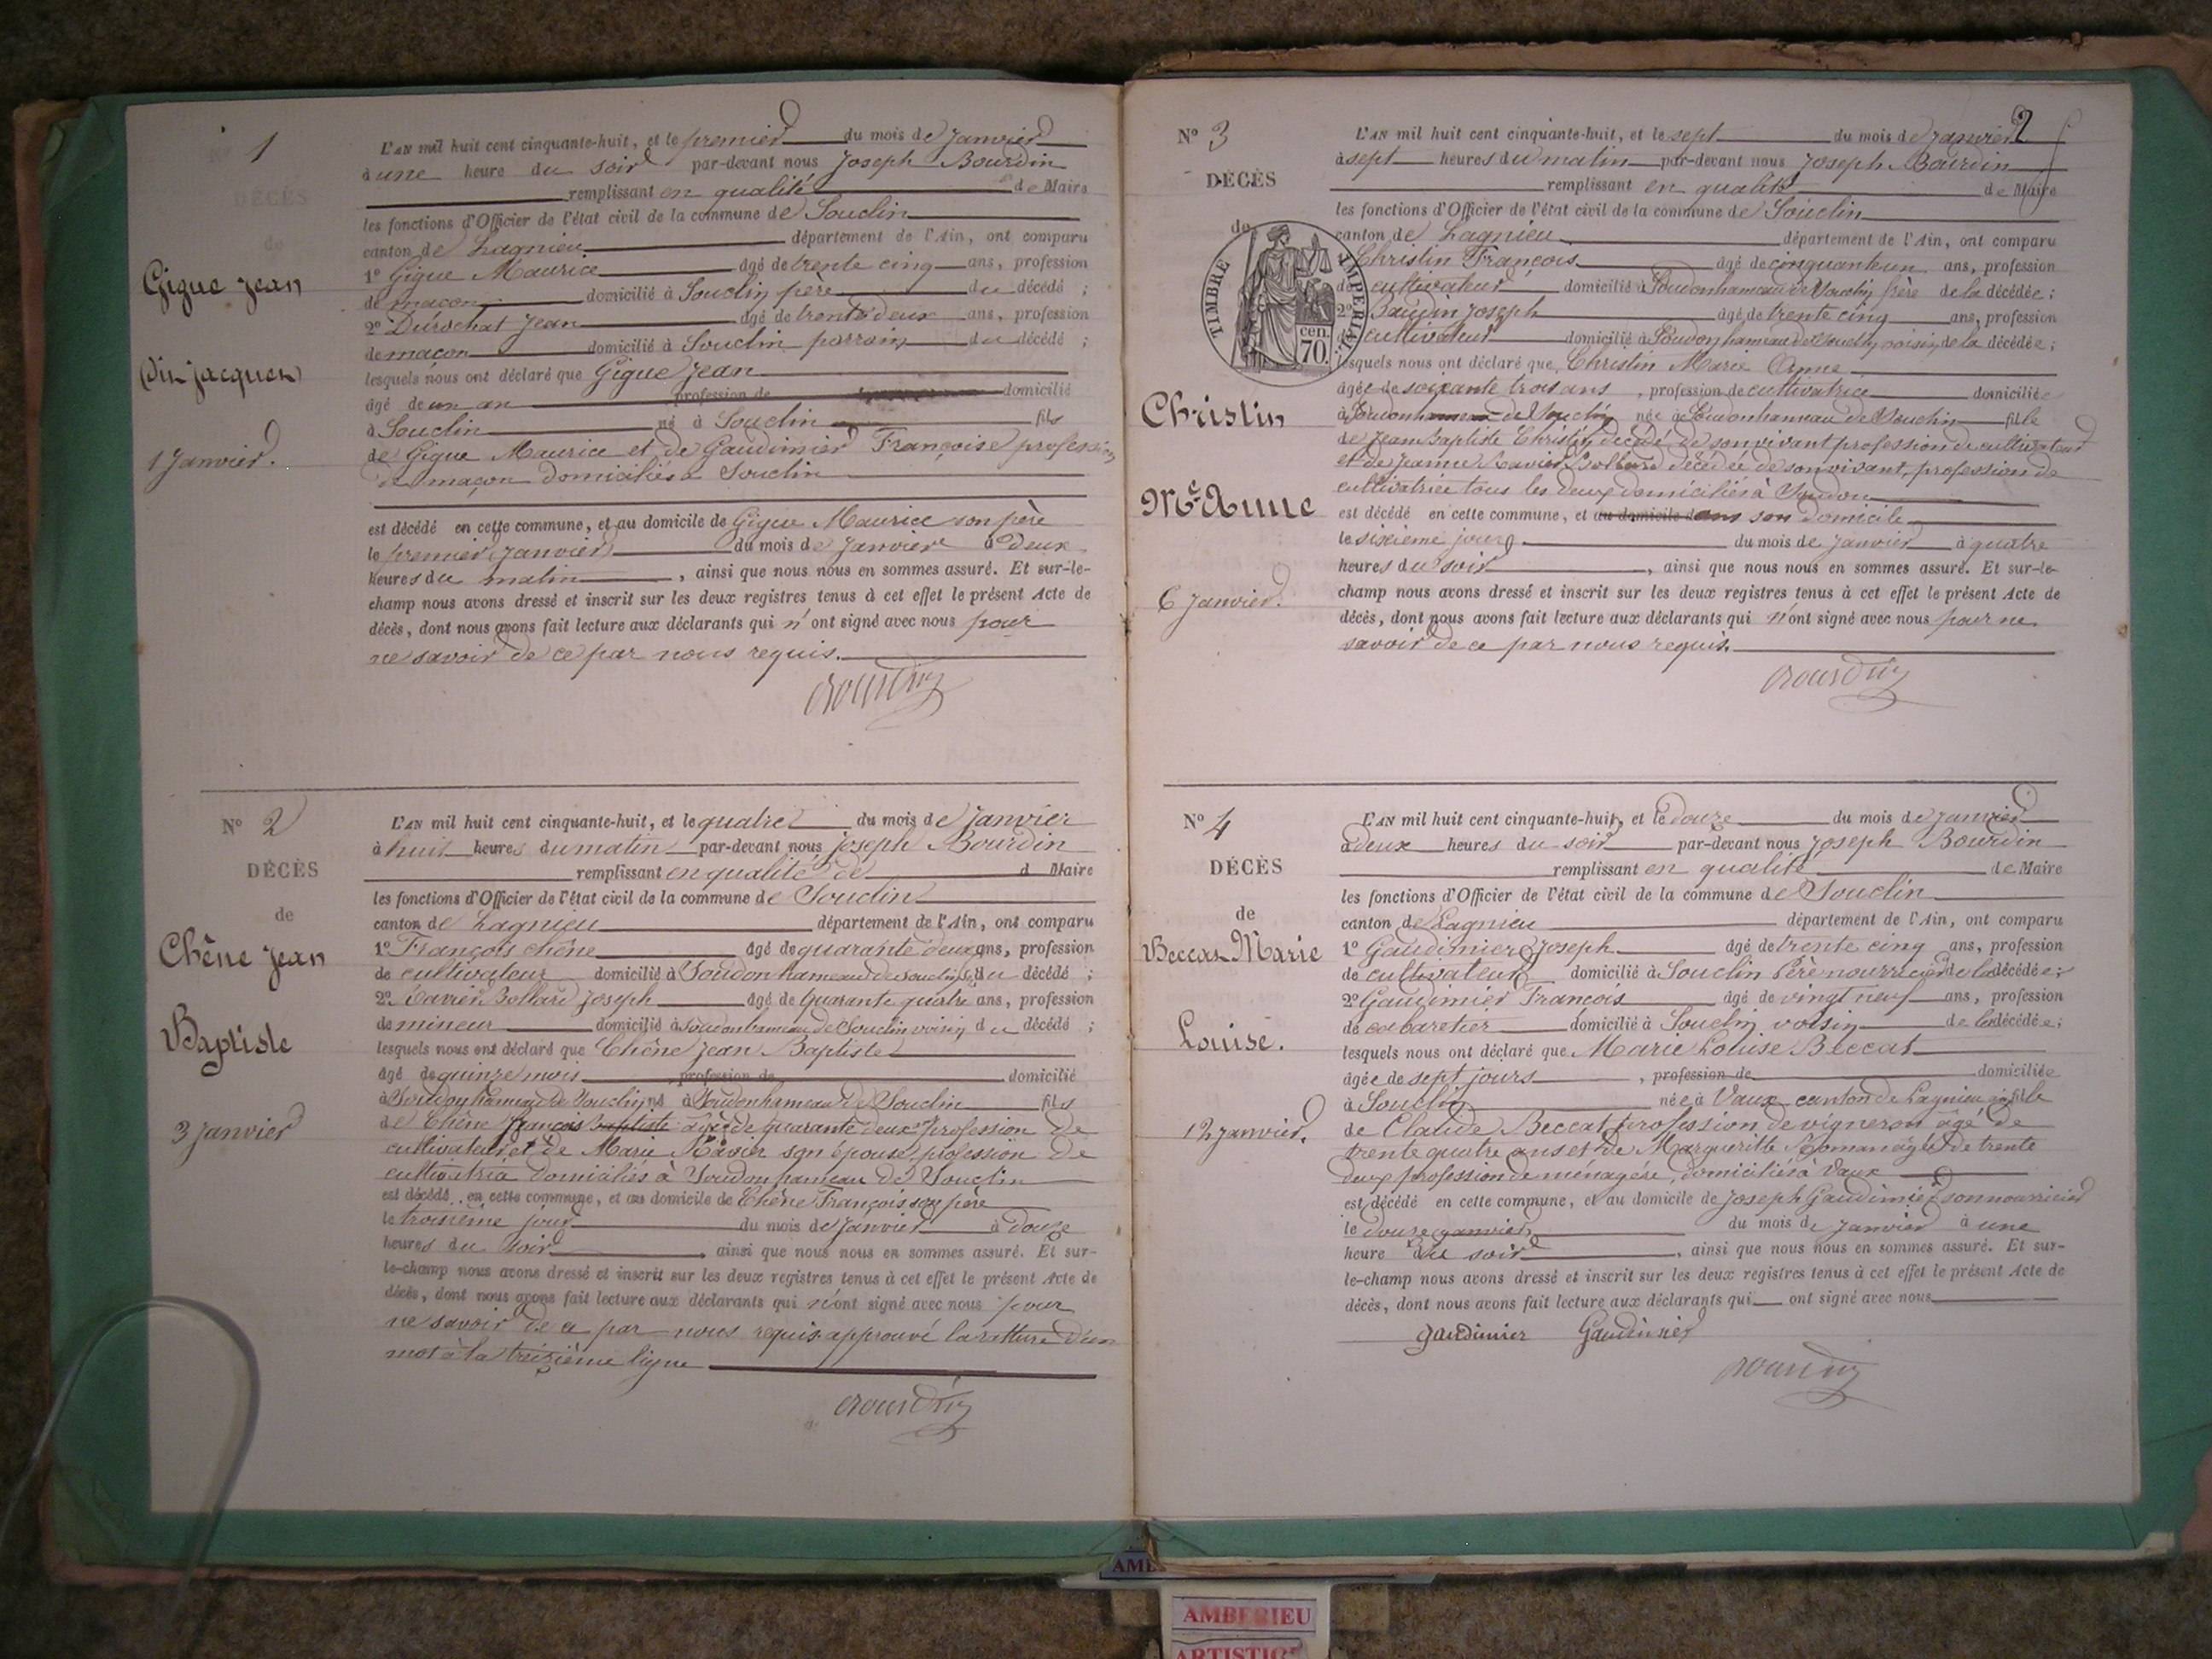 N° 1
DÉCÈS
de
Gigue Jean
(dit Jacques)
1 Janvier.
L'AN mil huit cent cinquante-huit, et le premier du mois de Janvier
à une heure du soir par-devant nous Joseph Bourdin
remplissant en qualité de Maire
les fonctions d'Officier de l'état civil de la commune de Souclin
canton de Lagnieu département de l'Ain, ont comparu
1° Gigue Maurice âgé de trente cinq ans, profession
de maçon domicilié à Souclin père du décédé ;
2° Jean âgé de trente deux ans, profession
de maçon domicilié à Souclin parrain du décédé ;
lesquels nous ont déclaré que Gigue Jean
âgé de un an profession de domicilié
à Souclin né à Souclin fils
de Gigue Maurice et de Gaudimier Françoise profession
de maçon domiciliés à Souclin
est décédé en cette commune, et au domicile de Gigue Maurice son père
le premier Janvier du mois de Janvier à deux
heures du matin, ainsi que nous nous en sommes assuré. Et sur-le-
champ nous avons dressé et inscrit sur les deux registres tenus à cet effet le présent Acte de
décès, dont nous avons fait lecture aux déclarants qui n'ont signé avec nous pour
ne savoir de ce par nous requis.
Bourdin
N° 2
DÉCÈS
de
Chêne Jean
Baptiste
3 Janvier
L'AN mil huit cent cinquante-huit, et le quatre du mois de Janvier
à huit heures du matin par-devant nous Joseph Bourdin
remplissant en qualité de d Maire
les fonctions d'Officier de l'état civil de la commune de Souclin
canton de Lagnieu département de l'Ain, ont comparu
1° François Chêne âgé de quarante deux ans, profession
de cultivateur domicilié à Soudon hameau de Souclin du décédé ;
2° Ravier Bollard Joseph âgé de quarante quatre ans, profession
de mineur domicilié à Soudon hameau de Souclin voisin du décédé ;
lesquels nous ont déclaré que Chêne Jean Baptiste
âgé de quinze mois profession de domicilié
à Soudon hameau de Souclin né à Soudon hameau de Souclin fils
de Chêne François Baptiste âgé de quarante deux profession de
cultivateur et de Marie Ravier son épouse profession de
cultivatrice domiciliés à Soudon hameau de Souclin
est décédé en cette commune, et au domicile de Chêne François son père
le troisième jour du mois de Janvier à douze
heures du soir, ainsi que nous nous en sommes assuré. Et sur-
le-champ nous avons dressé et inscrit sur les deux registres tenus à cet effet le présent Acte de
décès, dont nous avons fait lecture aux déclarants qui n'ont signé avec nous pour
ne savoir de ce par nous requis approuvé la rature d'un
mot à la treizième ligne
Bourdin
2
N° 3
DÉCÈS
de
TIMBRE IMPERIAL
70 cen.
Christin
Mie Anne
6 Janvier.
L'AN mil huit cent cinquante-huit, et le sept du mois de Janvier
à sept heures du matin par-devant nous Joseph Bourdin
remplissant en qualité de Maire
les fonctions d'Officier de l'état civil de la commune de Souclin
canton de Lagnieu département de l'Ain, ont comparu
Christin François âgé de cinquante un ans, profession
de cultivateur domicilié à Soudon hameau de Souclin frère de la décédée ;
2° Baudin Joseph âgé de trente cinq ans, profession
cultivateur domicilié à Soudon hameau de Souclin voisin de la décédée ;
lesquels nous ont déclaré que Christin Marie Anne
âgée de soixante trois ans, profession de cultivatrice domiciliée
à Soudon hameau de Souclin née à Soudon hameau de Souclin fille
de Jean Baptiste Christin décédé de son vivant profession de cultivateur
et de Jeanne Ravier Bollard décédée de son vivant, profession de
cultivatrice tous les deux domiciliés à Soudon
est décédé en cette commune, et au domicile dans son domicile
le sixième jour du mois de Janvier à quatre
heures du soir, ainsi que nous nous en sommes assuré. Et sur-le-
champ nous avons dressé et inscrit sur les deux registres tenus à cet effet le présent Acte de
décès, dont nous avons fait lecture aux déclarants qui n'ont signé avec nous pour ne
savoir de ce par nous requis.
Bourdin
N° 4
DÉCÈS
de
Beccat Marie
Louise.
12 Janvier.
L'AN mil huit cent cinquante-huit, et le douze du mois de Janvier
à deux heures du soir par-devant nous Joseph Bourdin
remplissant en qualité de Maire
les fonctions d'Officier de l'état civil de la commune de Souclin
canton de Lagnieu département de l'Ain, ont comparu
1° Gaudimier Joseph âgé de trente cinq ans, profession
de cultivateur domicilié à Souclin Père nourricier de la décédée ;
2° Gaudimier François âgé de vingt neuf ans, profession
de cabaretier domicilié à Souclin voisin de la décédée ;
lesquels nous ont déclaré que Marie Louise Beccat
âgée de sept jours, profession de domiciliée
à Souclin née à Vaux canton de Lagnieu fille
de Claude Beccat profession de vigneron âgé de
trente quatre ans et de Margueritte Roman âgée de trente
deux profession de ménagère, domiciliés à Vaux
est décédé en cette commune, et au domicile de Joseph Gaudimier son nourricier
le douze Janvier du mois de Janvier à une
heure du soir, ainsi que nous nous en sommes assuré. Et sur-
le-champ nous avons dressé et inscrit sur les deux registres tenus à cet effet le présent Acte de
décès, dont nous avons fait lecture aux déclarants qui ont signé avec nous
gaudimier Gaudimier
Bourdin
AMBERIEU
ARTISTIQ